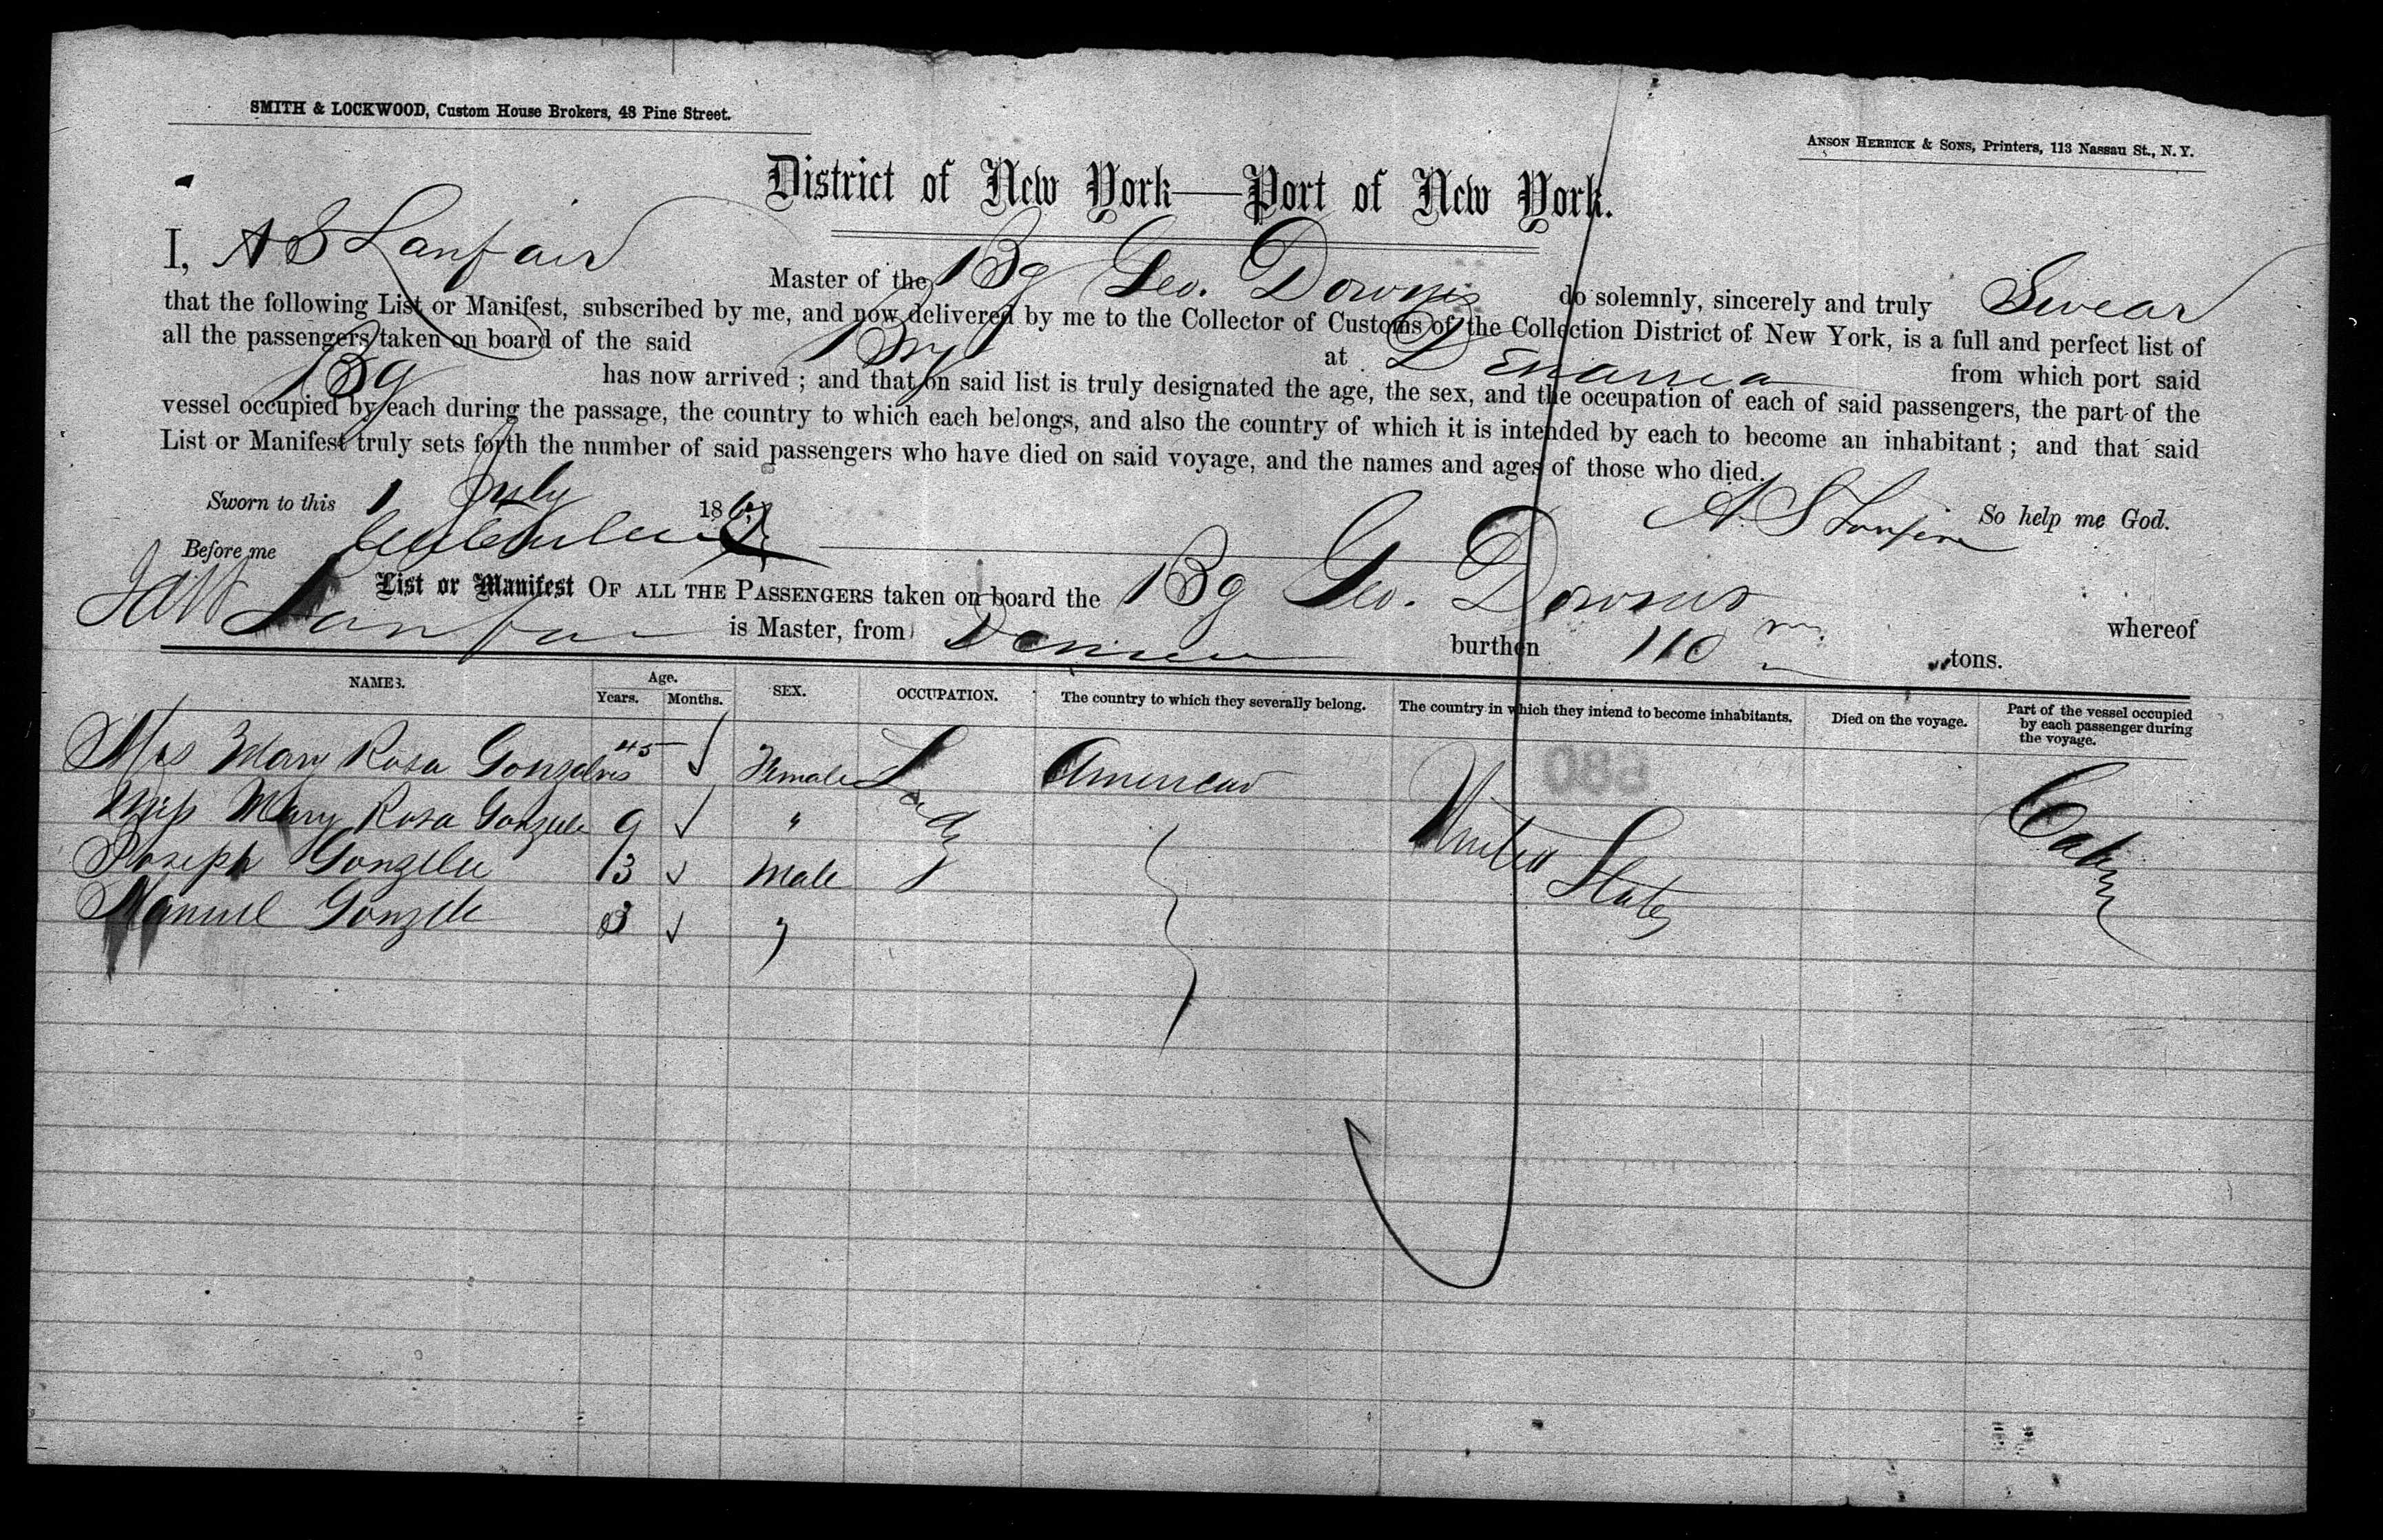 SMITH & LOCKWOOD, Custom House Brokers, 48 Pine Street.
ANSON HERRICK & SONS, Printers, 113 Nassau St., N. Y.
District of New York—Port of New York.
I, A S Lanfair Master of the Bg Geo. Downs do solemnly, sincerely and truly Swear
that the following List or Manifest, subscribed by me, and now delivered by me to the Collector of Customs of the Collection District of New York, is a full and perfect list of
all the passengers taken on board of the said Brig at Demarra from which port said
Bg has now arrived; and that on said list is truly designated the age, the sex, and the occupation of each of said passengers, the part of the
vessel occupied by each during the passage, the country to which each belongs, and also the country of which it is intended by each to become an inhabitant; and that said
List or Manifest truly sets forth the number of said passengers who have died on said voyage, and the names and ages of those who died.
Sworn to this 1 July 186
A. S Lanfair So help me God.
Before me
List or Manifest OF ALL THE PASSENGERS taken on board the Bg Geo. Downs whereof
Lanfair is Master, from burthen 110 tons.
NAMES. Age. Years. Months. SEX. OCCUPATION. The country to which they severally belong. The country in which they intend to become inhabitants. Died on the voyage. Part of the vessel occupied by each passenger during the voyage.
Mrs Mary Rosa Gonzalves 45 Female Lady American United States Cabin
Miss Mary Rosa Gonzale 9 "
Joseph Gonzele 13 Male
Manuel Gonzele 8 "
680